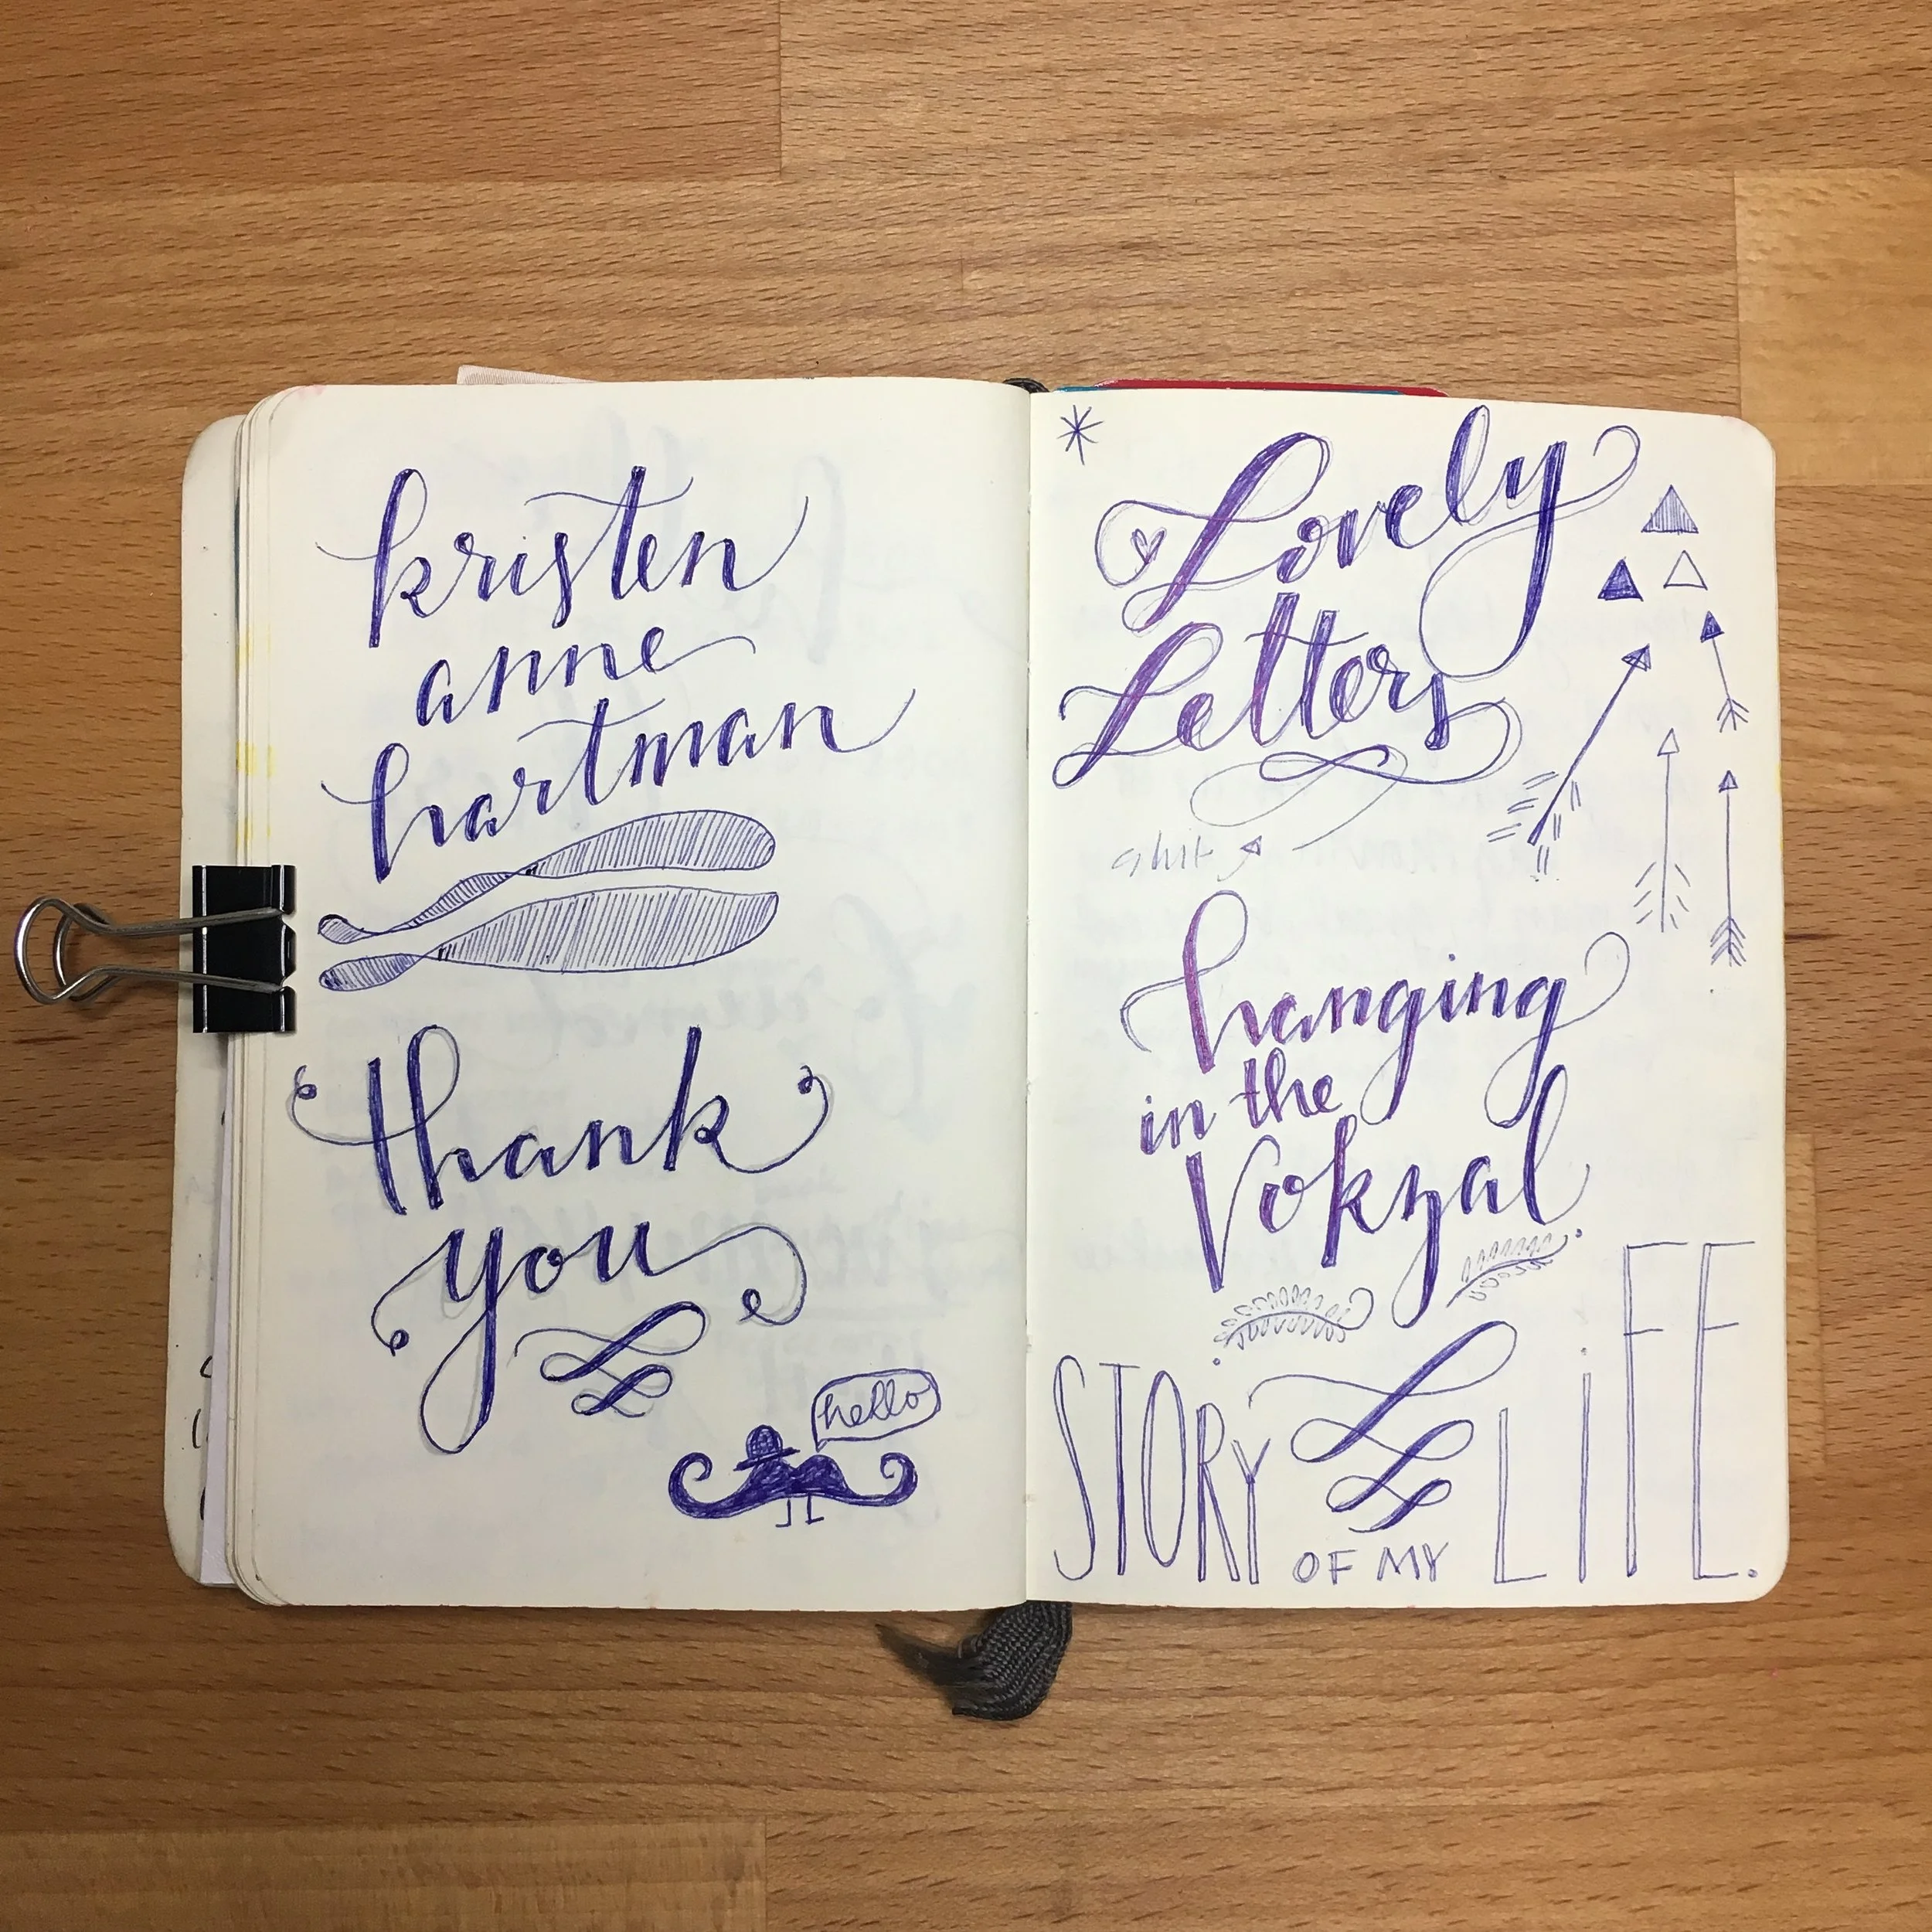 kristen
anne
hartman
thank
you
hello
Lovely
Letters
shit
hanging
in the
Vokzal
STORY
OF MY
LiFE.